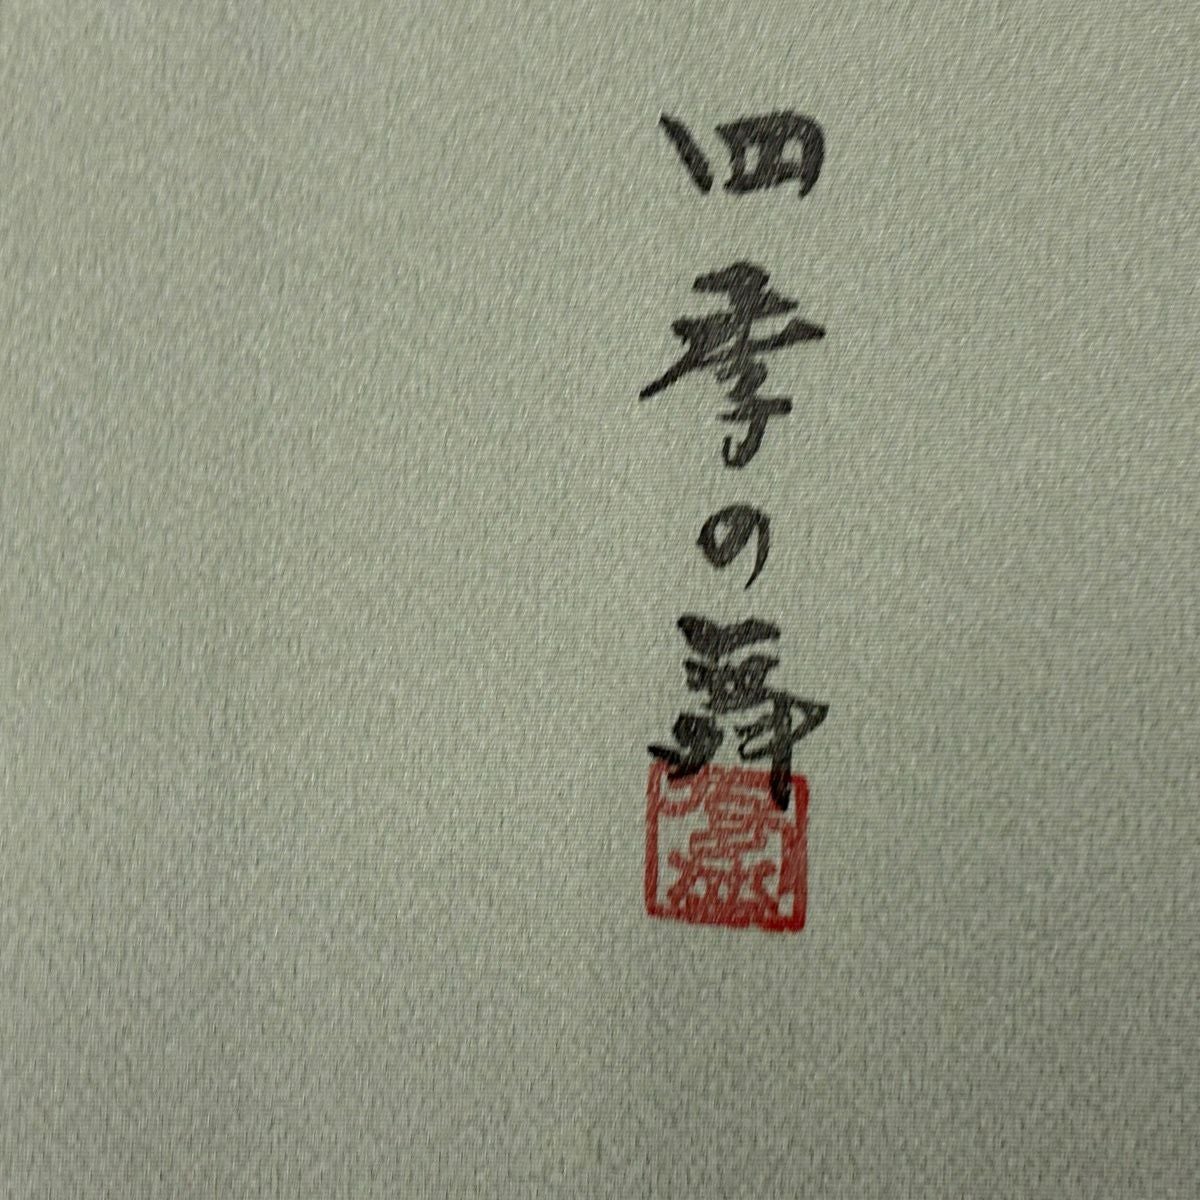 四季の舞